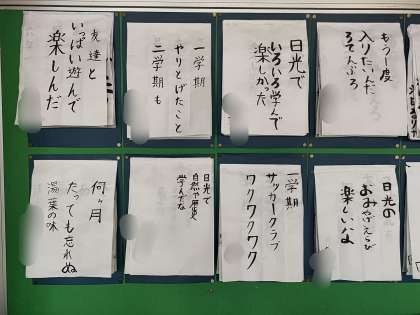 もう一度
入りたいんだ
ろてんぶろ
日光で
いろいろ学んで
楽しかった
一学期
やりとげたこと
二学期も
友達と
いっぱい遊んで
楽しんだ
日光の
おみやげえらび
楽しいよ
一学期
サッカークラブ
ワクワクワク
日光で
自然や歴史
学んだな
何ヶ月
たっても忘れぬ
湯葉の味